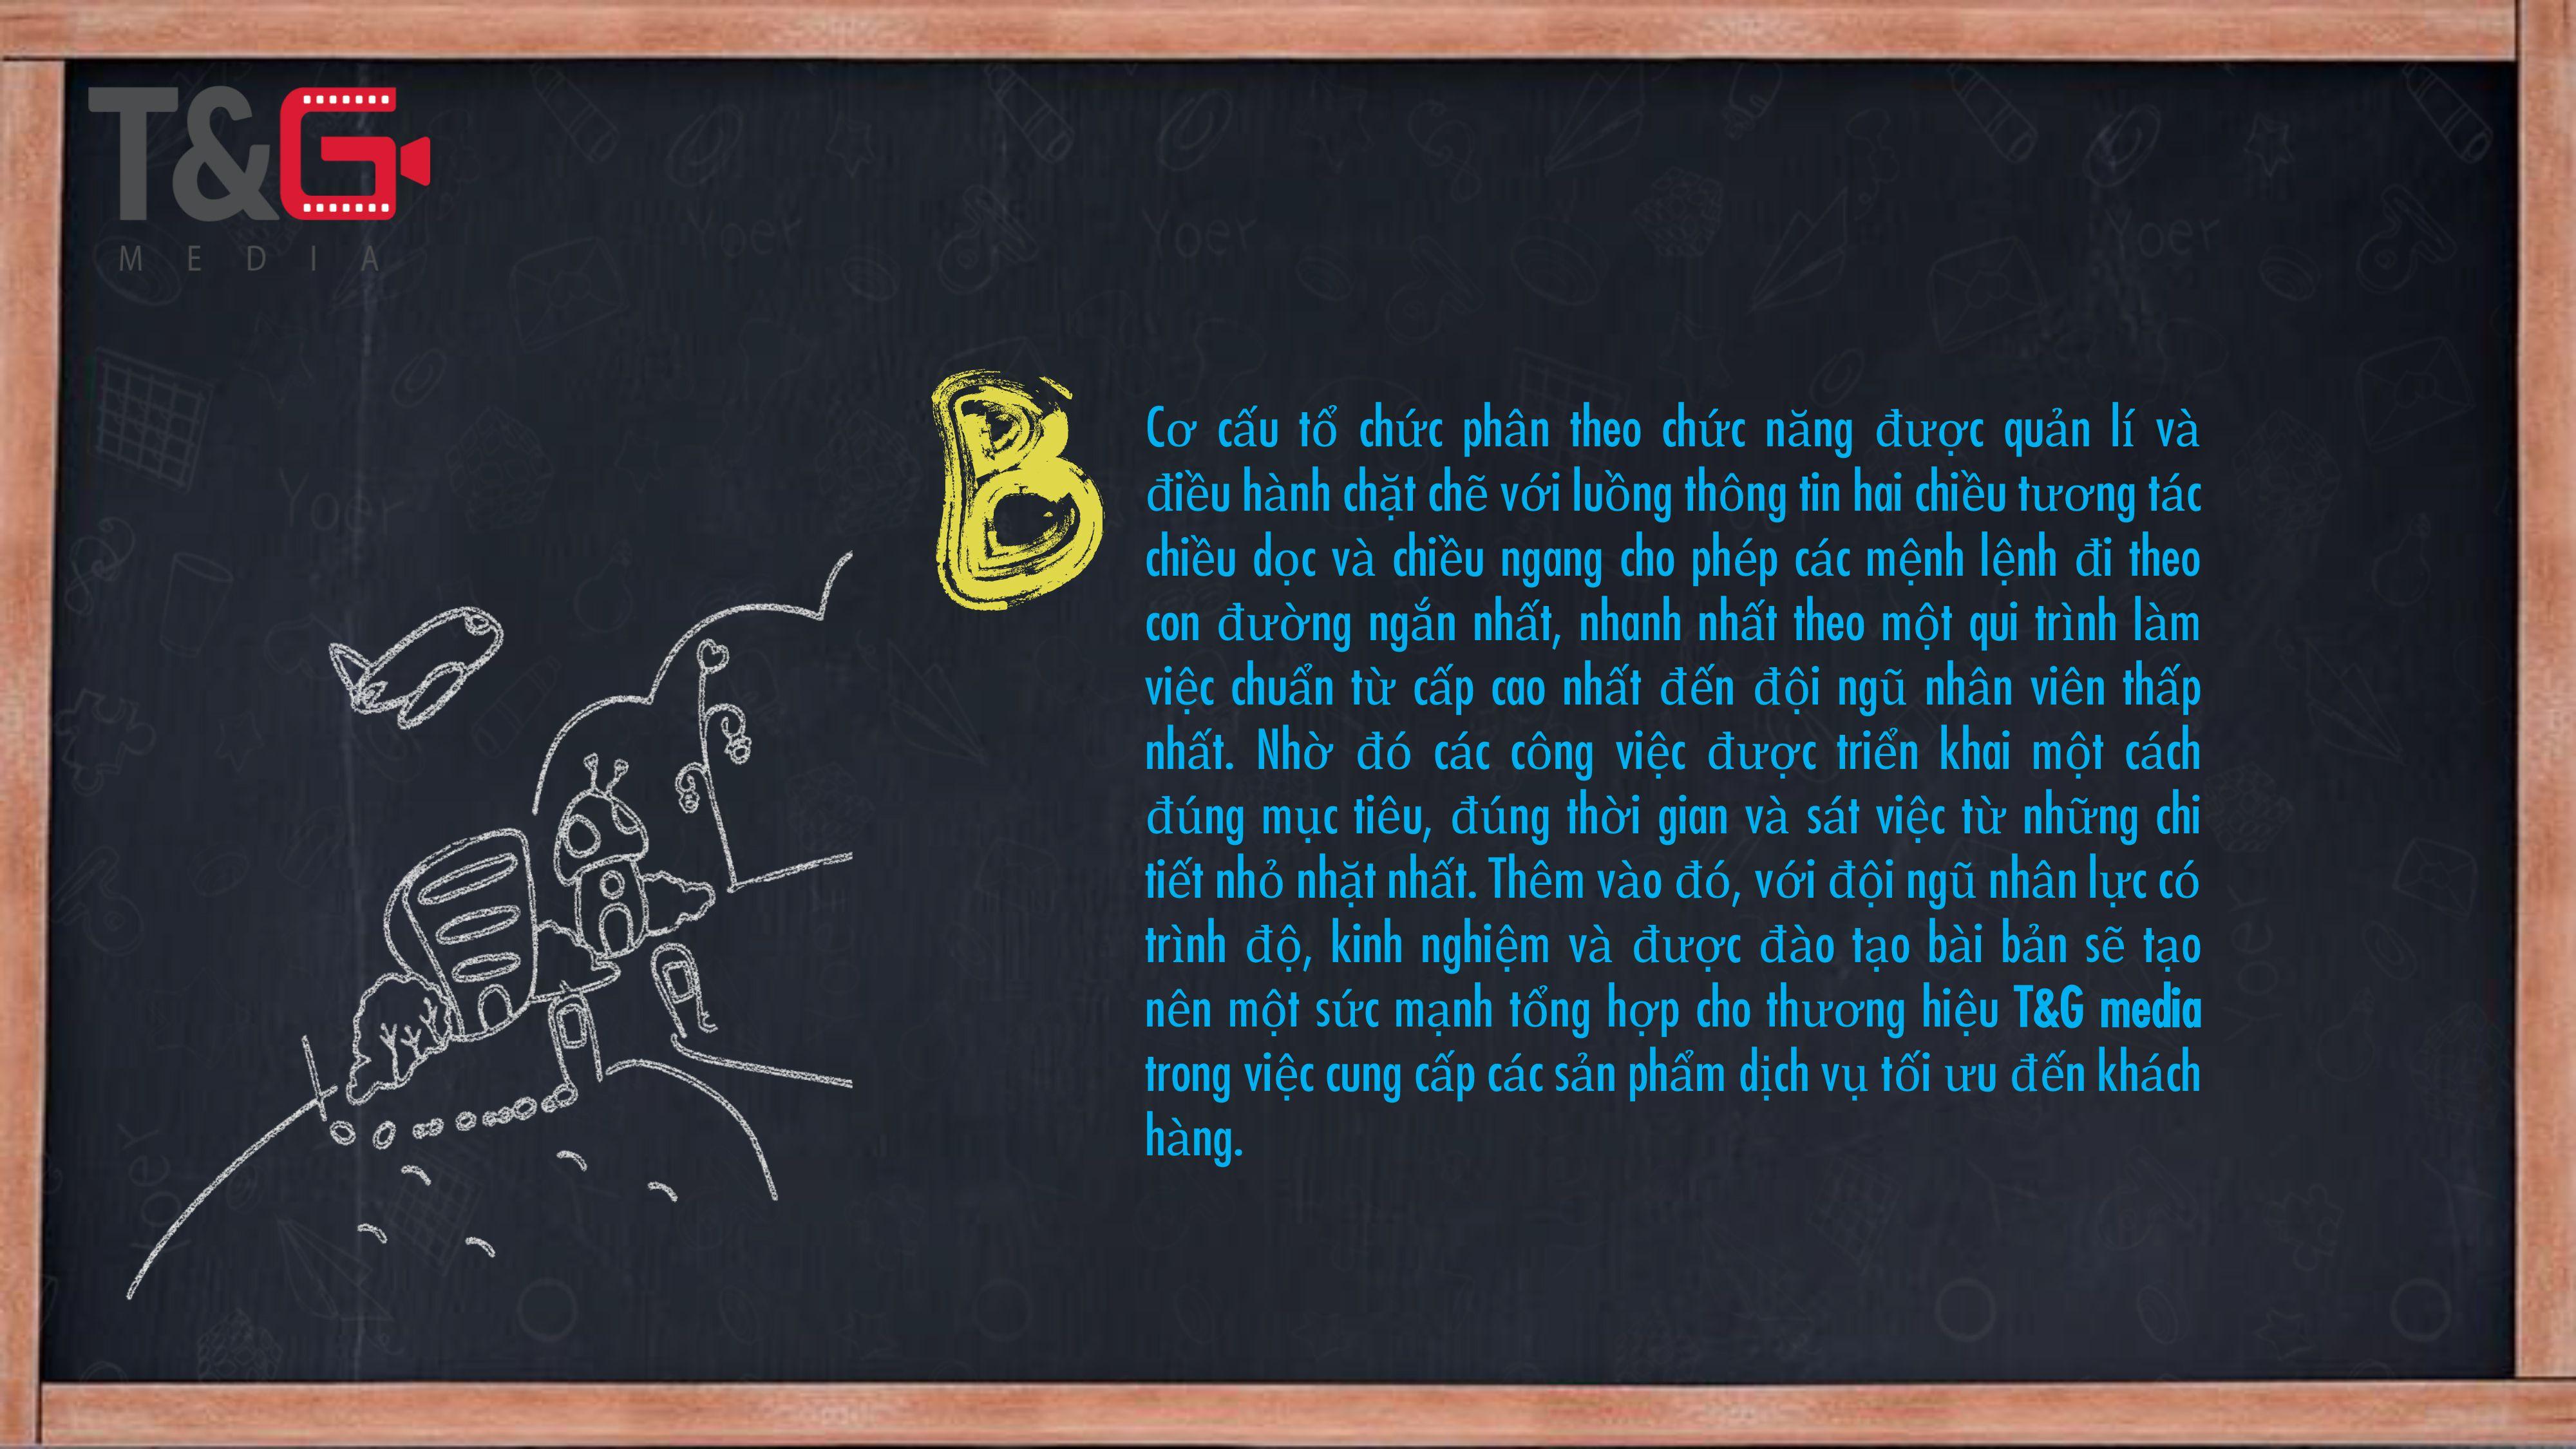 T&G
MEDIA
B
Cơ cấu tổ chức phân theo chức năng được quản lí và
điều hành chặt chẽ với luồng thông tin hai chiều tương tác
chiều dọc và chiều ngang cho phép các mệnh lệnh đi theo
con đường ngắn nhất, nhanh nhất theo một qui trình làm
việc chuẩn từ cấp cao nhất đến đội ngũ nhân viên thấp
nhất. Nhờ đó các công việc được triển khai một cách
đúng mục tiêu, đúng thời gian và sát việc từ những chi
tiết nhỏ nhặt nhất. Thêm vào đó, với đội ngũ nhân lực có
trình độ, kinh nghiệm và được đào tạo bài bản sẽ tạo
nên một sức mạnh tổng hợp cho thương hiệu T&G media
trong việc cung cấp các sản phẩm dịch vụ tối ưu đến khách
hàng.
Yoer
Yoer
Yoer
Yoer
Yoer
Yoer